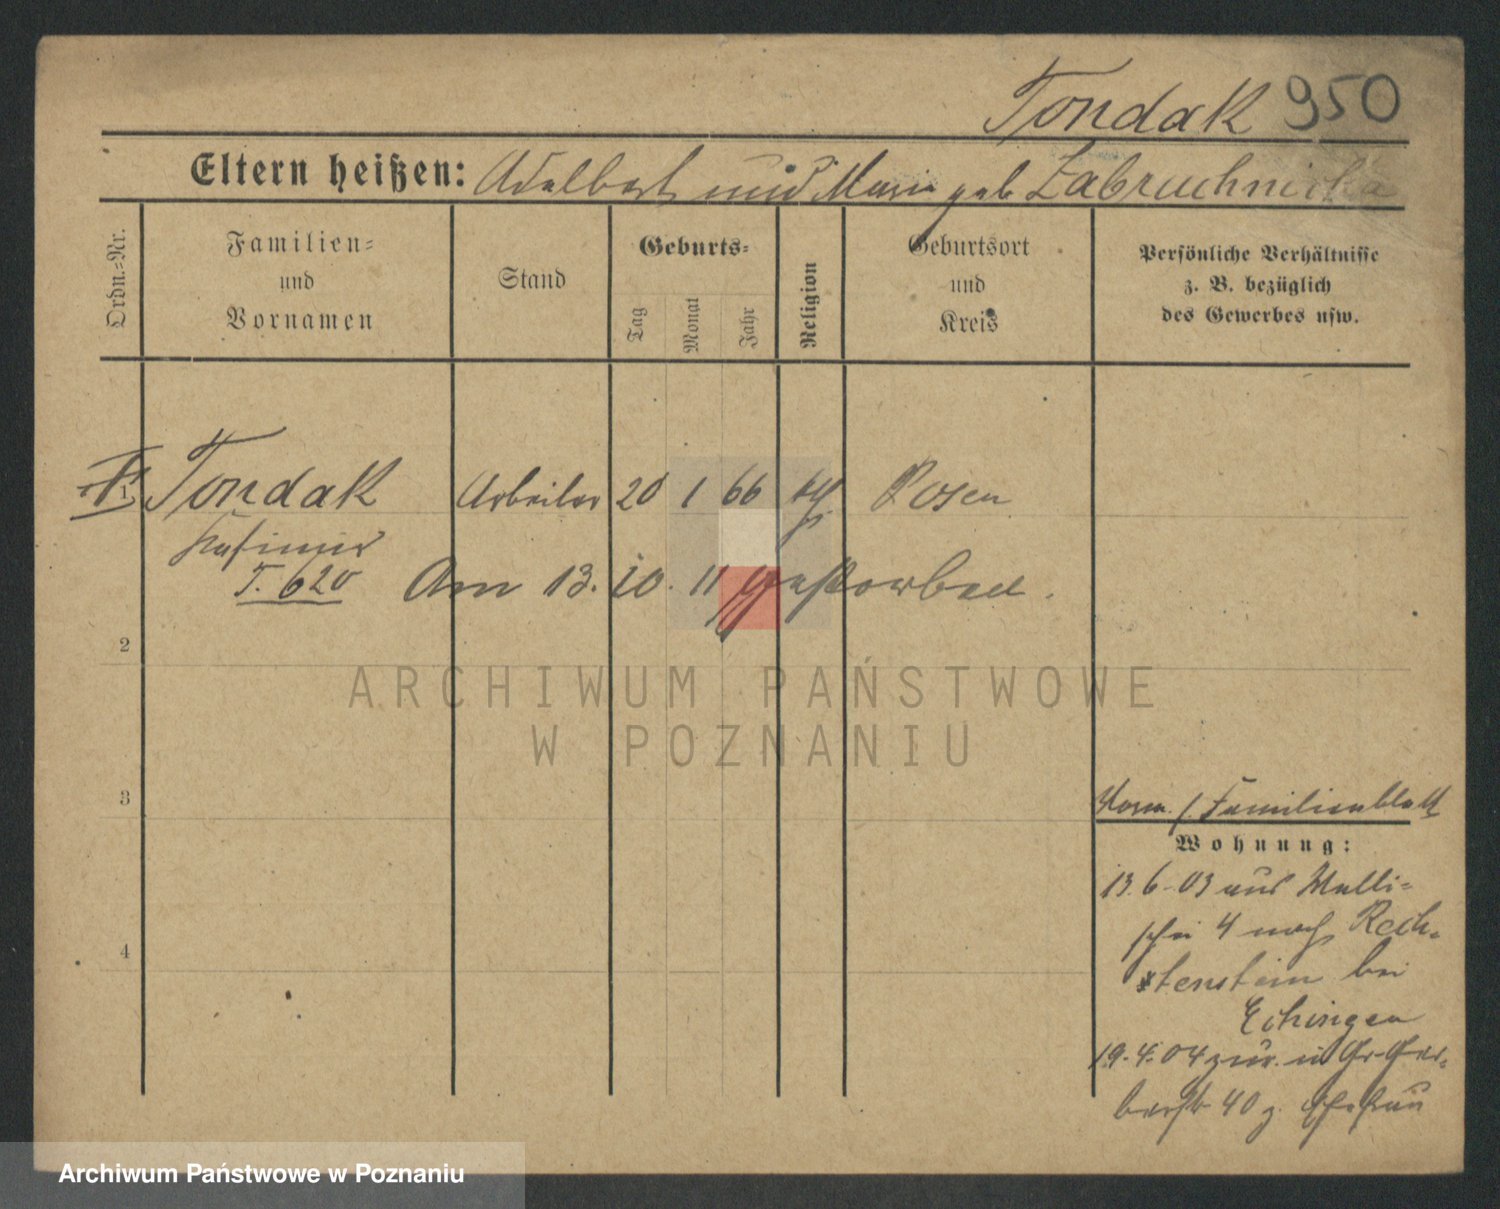 Tondak 950
Eltern heißen: Adalbert und Marie geb Zabruchnicka
Ordn.=Nr.
Familien=
und
Vornamen
Stand
Geburts=
Tag
Monat
Jahr
Religion
Geburtsort
und
Kreis
Persönliche Verhältnisse
z. B. bezüglich
des Gewerbes usw.
1 Tondak Arbeiter 20 1 66 kth. Posen
Kasimir
T. 620 Am 13. 10. 11 gestorben.
2
3
4
Familienblatt
Wohnung:
13.6.03 aus Walli=
schei 4 nach Rech=
tenstein bei
Echingen
19.4.04 zur. in Gr. Ger=
berstr 40 z. Ehefrau
ARCHIWUM PAŃSTWOWE
W POZNANIU
Archiwum Państwowe w Poznaniu